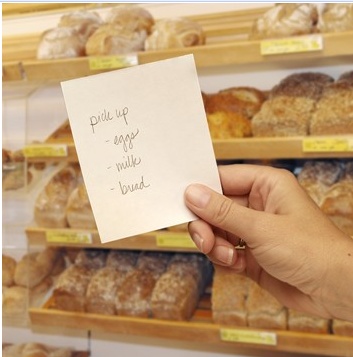 pick up
- eggs
- milk
- bread